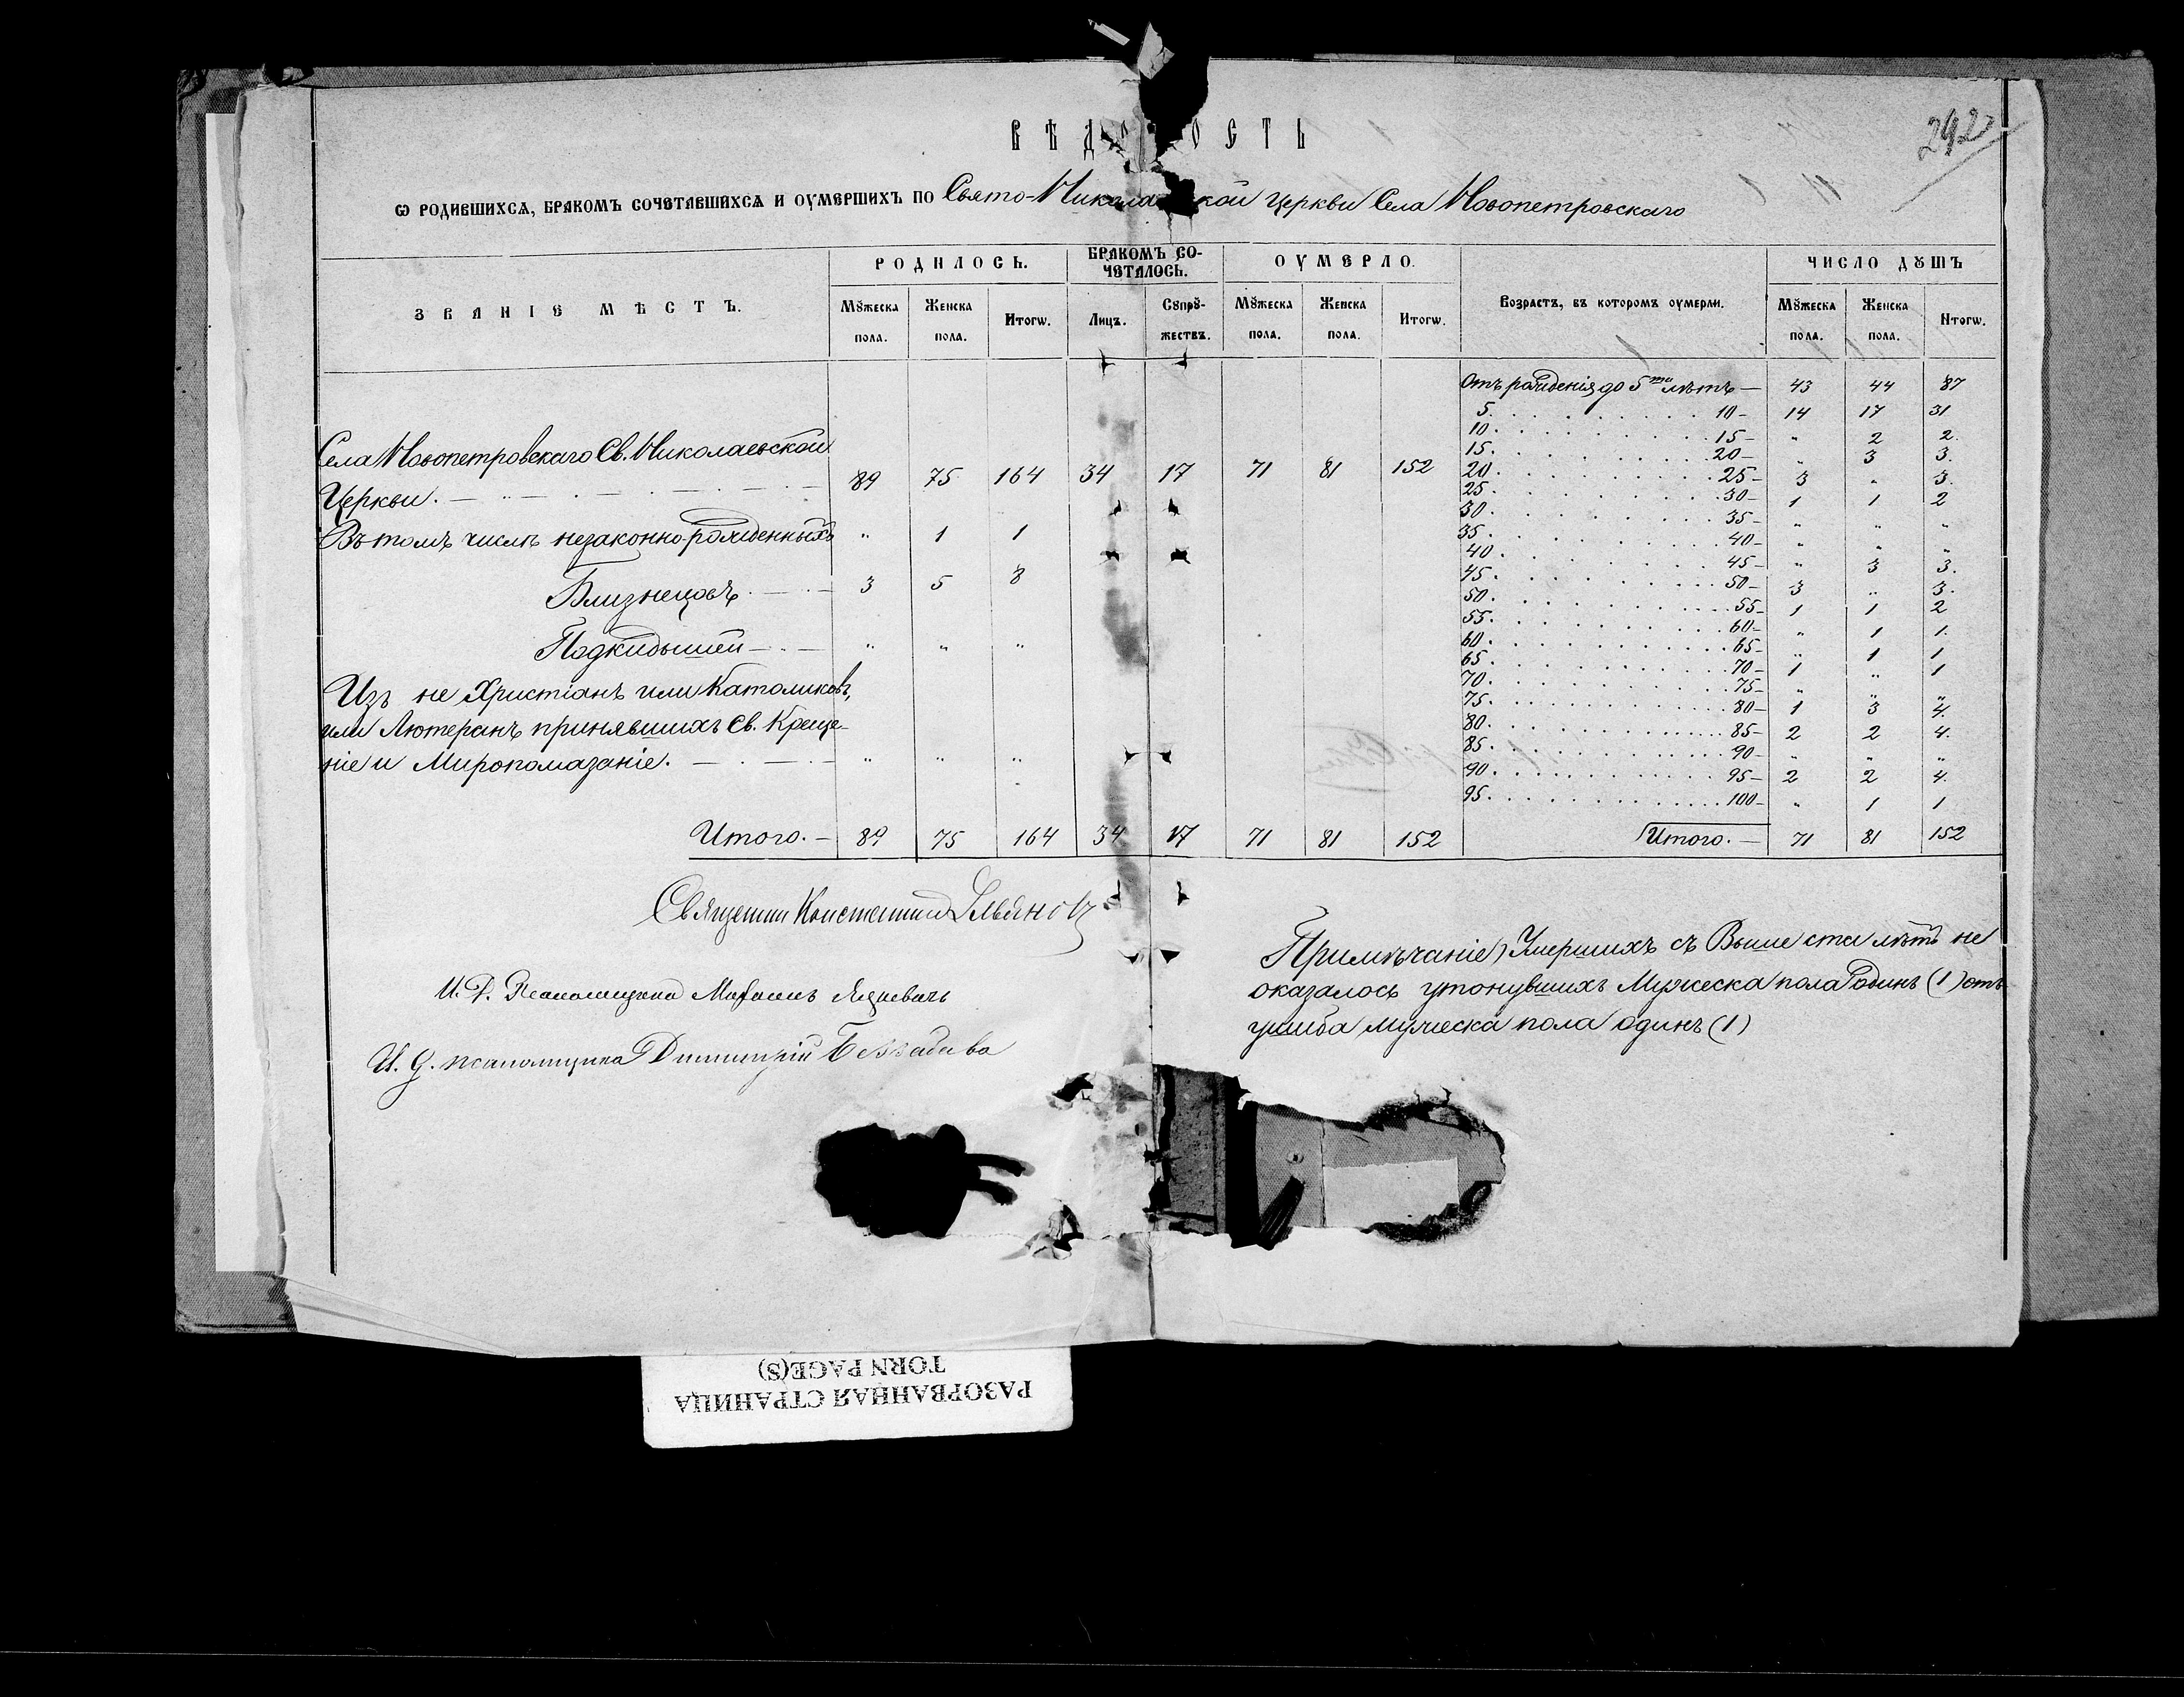 ВѢД ОСТЬ
292
Ѡ РОДИВШИХСѦ, БРАКОМЪ СОЧЕТАВШИХСѦ И ОУМЕРШИХЪ ПО Свято-Никола кой церкви Села Новопетровскаго
ЗВАНІЕ МѢСТЪ. РОДИЛОСЬ. БРАКОМЪ СО-ЧЕТАЛОСЬ. ОУМЕРЛО. Возрастъ, въ которомъ оумерли. ЧИСЛО ДꙊШЪ
Мꙋжеска пола. Женска пола. Итогѡ. Лицъ. Сꙋпрꙋ-жествъ. Мꙋжеска пола. Женска пола. Итогѡ. Мꙋжеска пола. Женска пола. Итогѡ.
Села Новопетровскаго Св. Николаевской
Церкви. 89 75 164 34 17 71 81 152
Въ томъ числѣ незаконно-рожденныхъ " 1 1
Близнецовъ 3 5 8
Подкидышей " " "
Изъ не Христіанъ или Католиковъ,
или Лютеранъ принявшихъ Св. Креще-
ніе и Миропомазаніе. " " "
Итого. 89 75 164 34 17 71 81 152
Отъ рожденія до 5ти лѣтъ 43 44 87
5 10 14 17 31
10 15 " 2 2.
15 20 " 3 3.
20 25 3 " 3.
25 30 1 1 2
30 35 " " "
35 40 " " "
40 45 " 3 3.
45 50 3 " 3.
50 55 1 1 2
55 60 " 1 1.
60 65 " 1 1
65 70 1 " 1
70 75 " " "
75 80 1 3 4.
80 85 2 2 4.
85 90 " " "
90 95 2 2 4.
95 100 " 1 1
Итого. 71 81 152
Священник Константин
И. Д. Псаломщика
И. д. псаломщика Димитрій
Примѣчаніе) Умершихъ съ Выше ста лѣтъ не
оказалось утонувшихъ Мужеска пола один (1) отъ
ушиба мужеска пола одинъ (1)
РАЗОРВАННАЯ СТРАНИЦА
TORN PAGE(S)